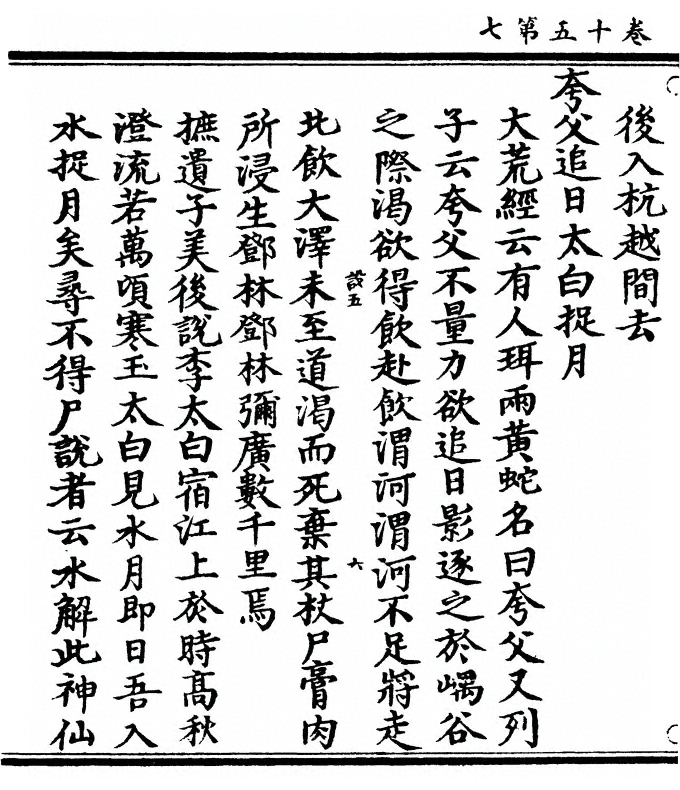 卷十五第七
後入杭越間去
夸父追日太白捉月
大荒經云有人珥兩黃蛇名曰夸父又列
子云夸父不量力欲追日影逐之於嵎谷
之際渴欲得飲赴飲渭河渭河不足將走
設五
六
北飲大澤未至道渴而死棄其杖尸膏肉
所浸生鄧林鄧林彌廣數千里焉
摭遺子美後說李太白宿江上於時高秋
澄流若萬頃寒玉太白見水月即曰吾入
水捉月矣尋不得尸說者云水解此神仙